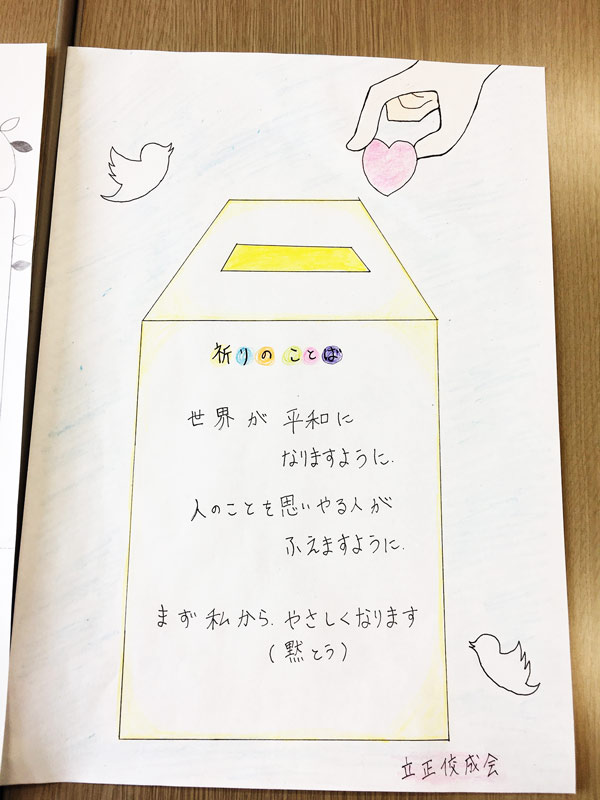 祈りのことば
世界が 平和に
なりますように.
人のことを思いやる人が
ふえますように.
まず私から.やさしくなります
(黙とう)
立正佼成会